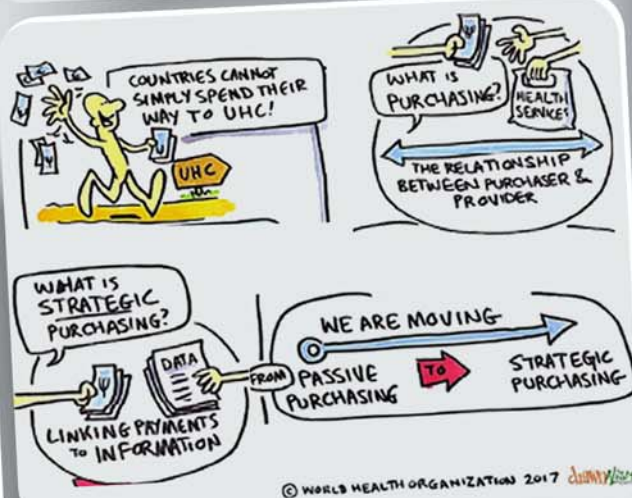 COUNTRIES CANNOT
SIMPLY SPEND THEIR
WAY TO UHC!
UHC
WHAT IS
PURCHASING?
HEALTH
SERVICES
THE RELATIONSHIP
BETWEEN PURCHASER &
PROVIDER
WHAT IS
STRATEGIC
PURCHASING?
DATA
LINKING PAYMENTS
TO INFORMATION
WE ARE MOVING
FROM
PASSIVE
PURCHASING
TO
STRATEGIC
PURCHASING
© WORLD HEALTH ORGANIZATION 2017